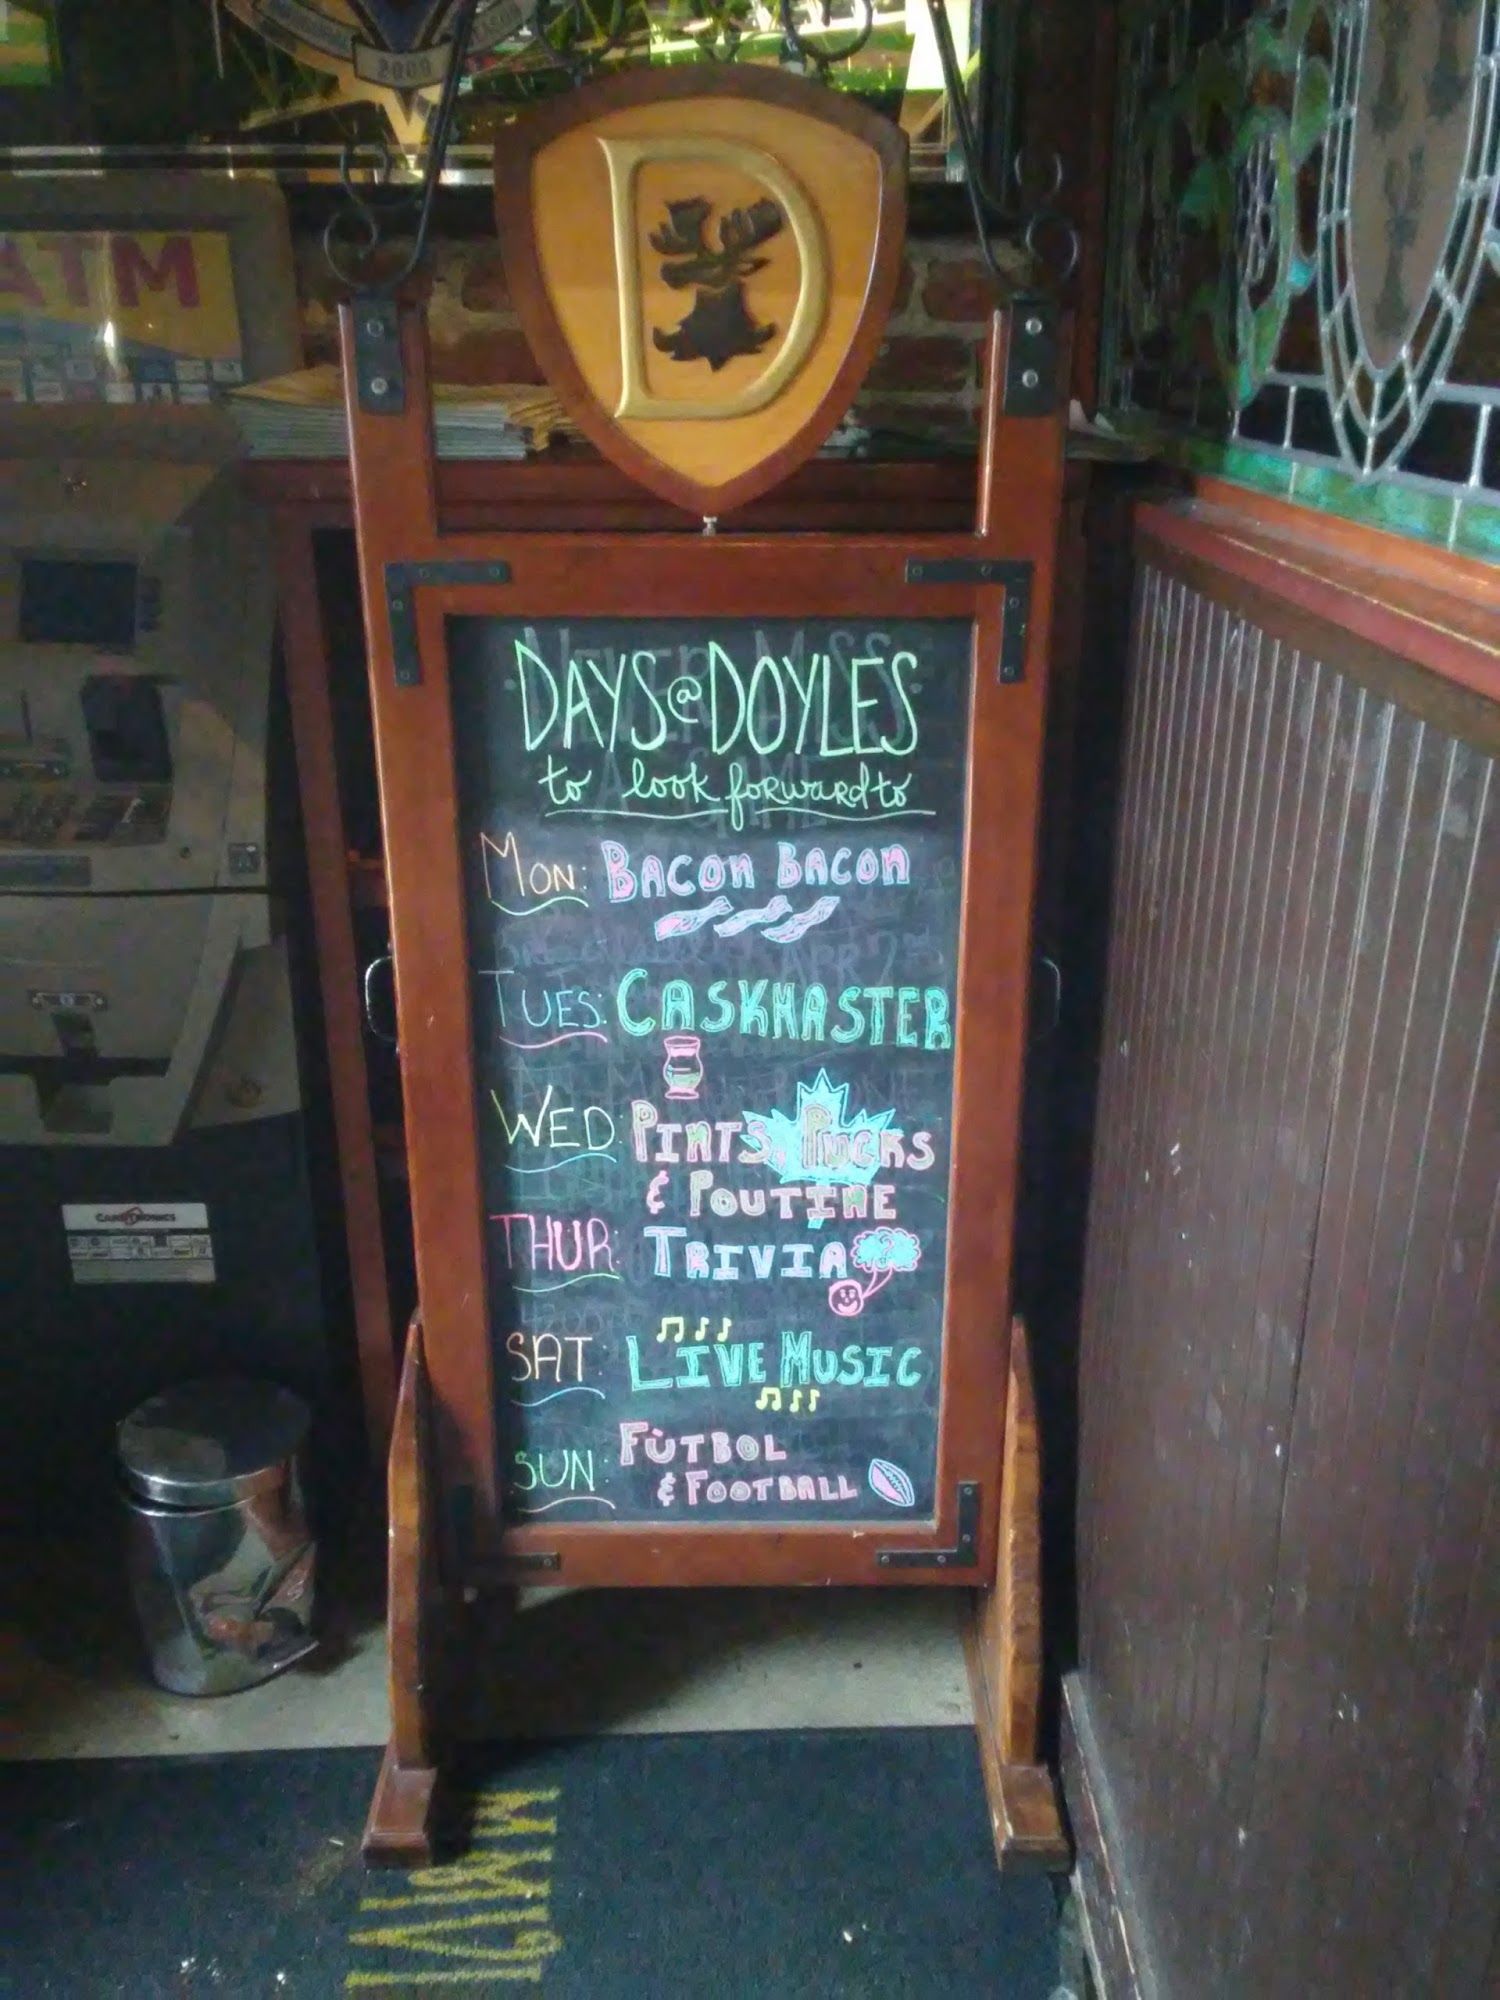 2009
ATM
D
DAYS @ DOYLES
to look forward to
MON: BACON BACON
TUES: CASKMASTER
WED: PINTS, PUCKS
& POUTINE
THUR: TRIVIA ?
SAT: LIVE MUSIC
SUN: FÙTBOL
& FOOTBALL
CARDTRONICS